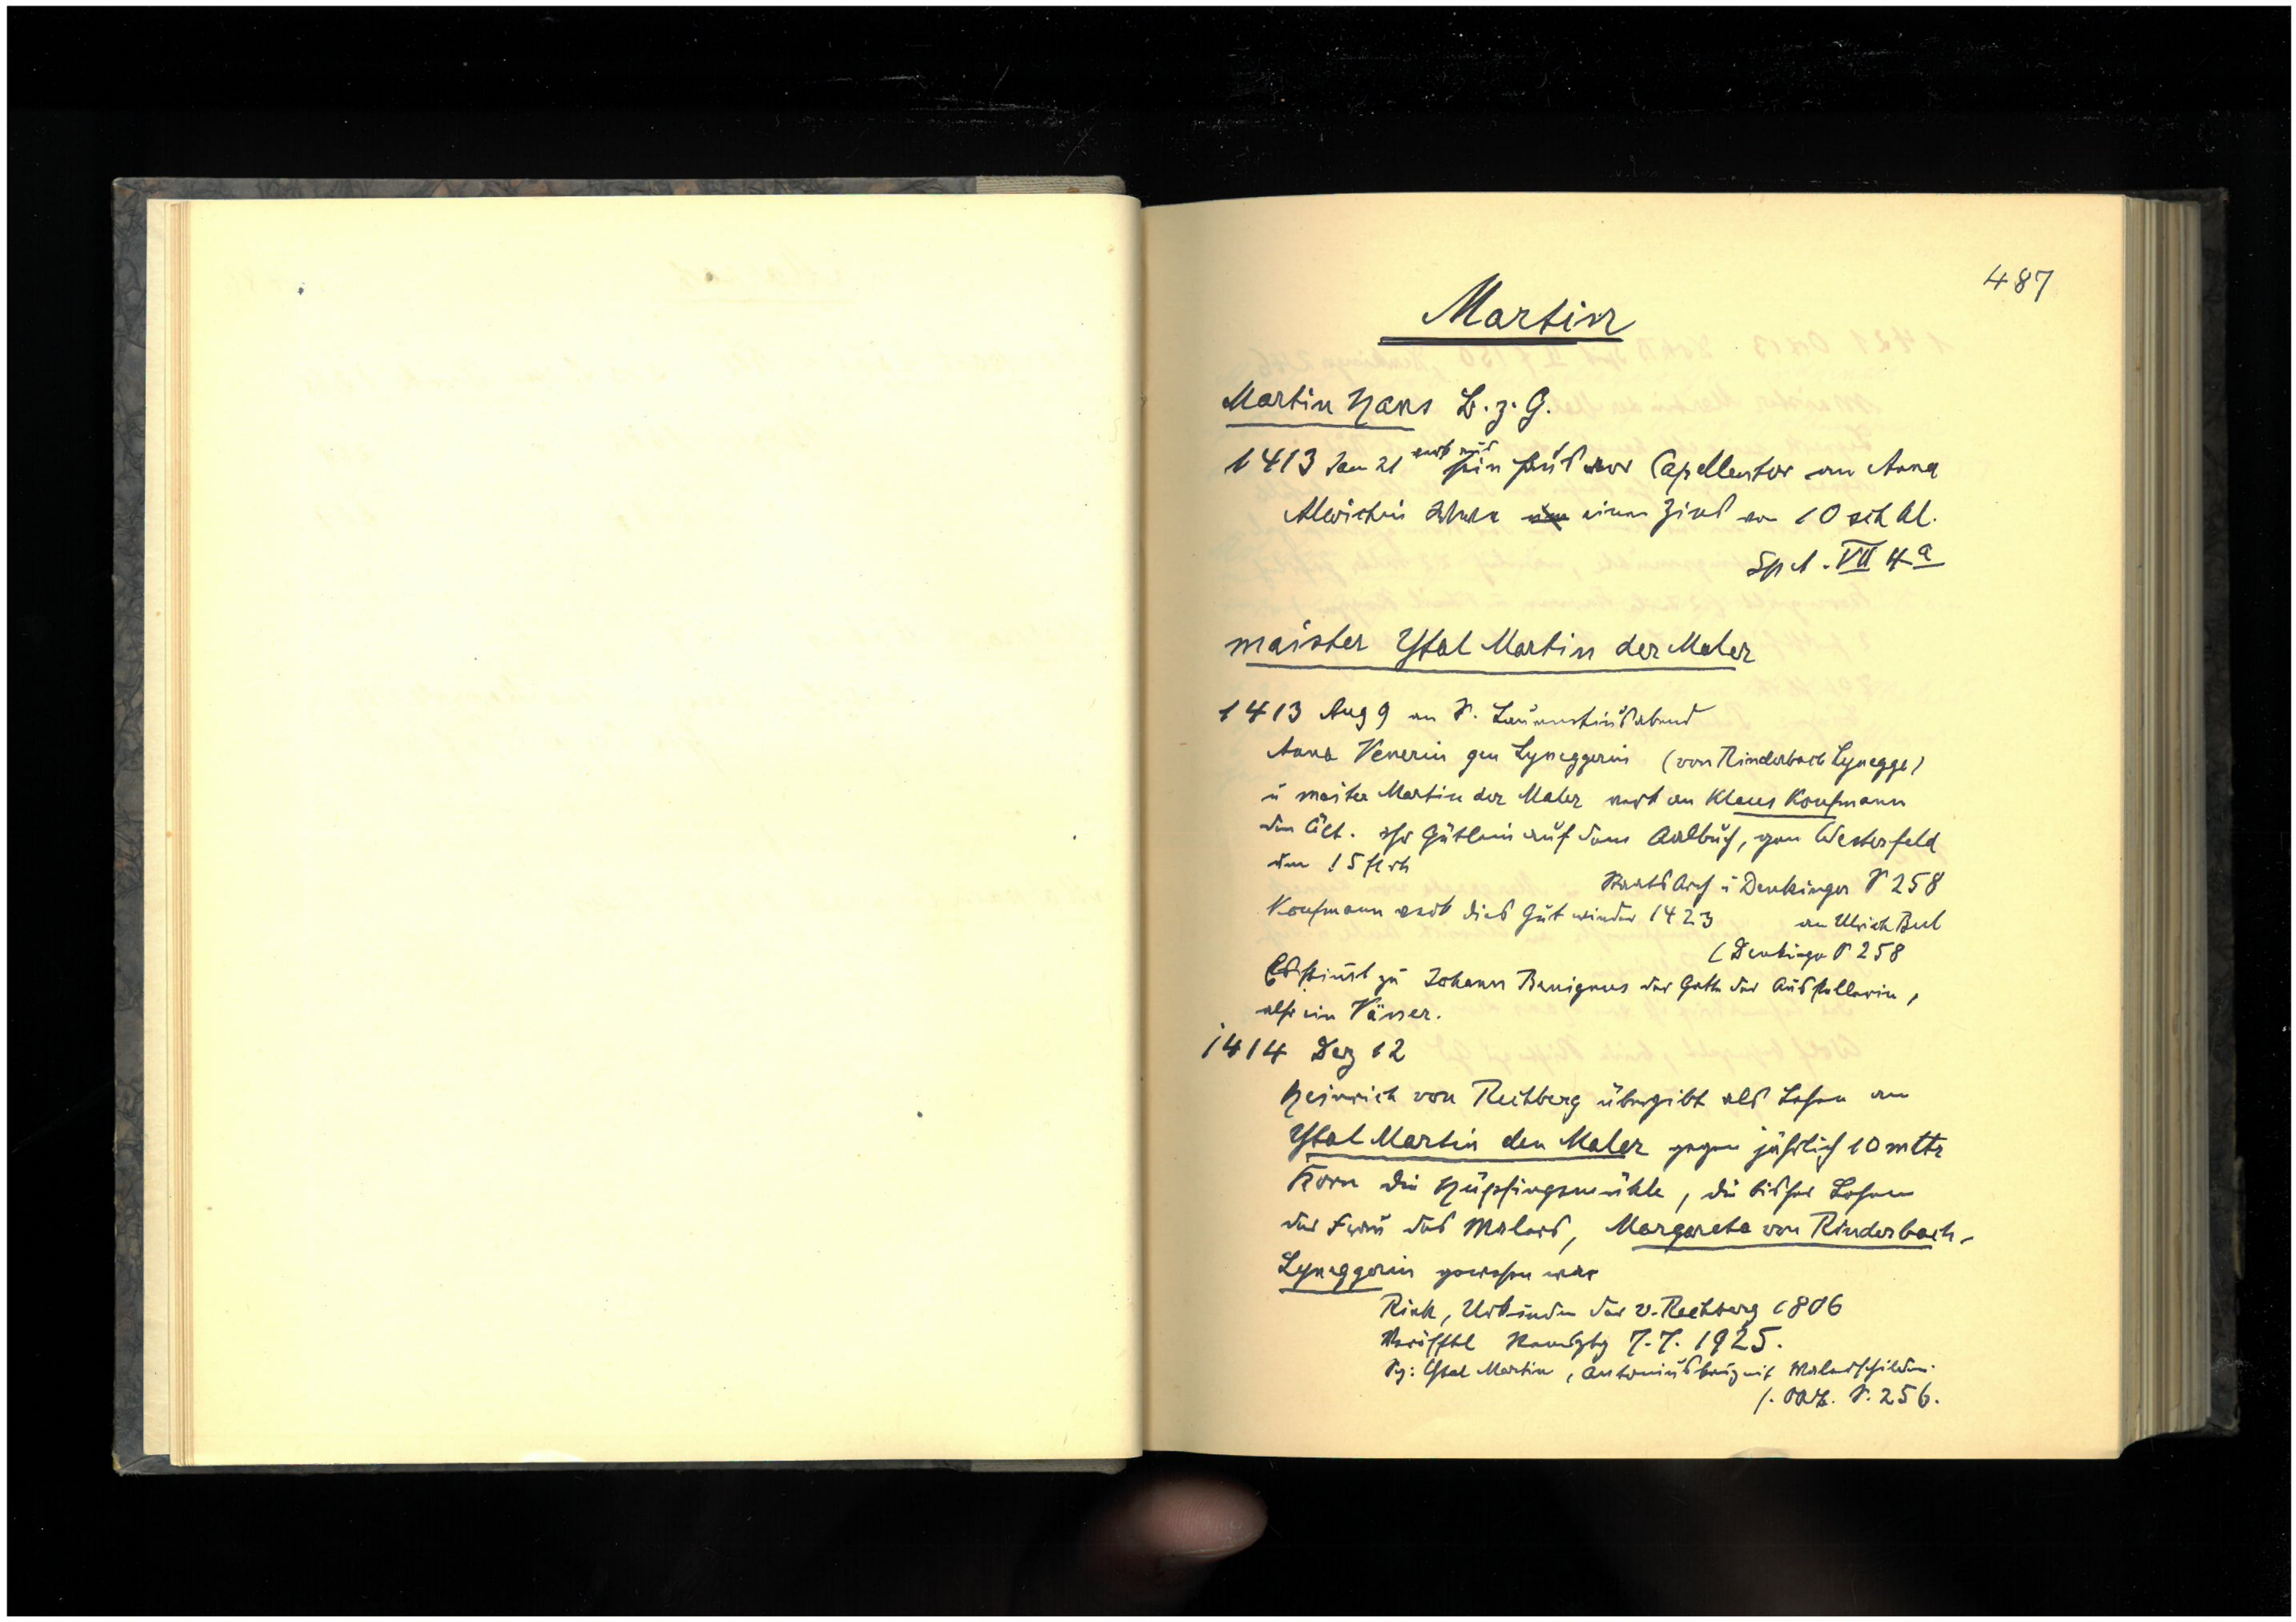 487
Martin
Martin Hans B. z. G.
1413 Jan 21 verk aus sein Haus vor Capellentor an Anna
Alwichin Schwe einen Zins von 10 sch hl.
Sp A. VII 4a
maister Ytal Martin der Maler
1413 Aug 9 an S. Laurentiusabend
Anna Venerin gen Lyneggerin (von Rinderbach Lynegge)
u maister Martin der Maler verk an Klaus Koufmann
den Ält. ihr Gütlein auf dem Aalbuch, gen Westerfeld
um 15 fl rh
Staats Arch u Denkinger S 258
Koufmann verk dies Gut wieder 1423 an Ulrich Bul
(Denkinger S 258
Es scheint zu Johann Benignus der Gatte der Ausstellerin,
also ein Väner.
1414 Dez 12
Heinrich von Rechberg übergibt als Lehen an
Ytal Martin den Maler gegen jährlich 10 mttr
Korn die Hüpfingsmühle, die bisher Lehen
der Frau des Malers, Margareta von Rinderbach-
Lyneggerin gewesen war
Rink, Urkunden der v. Rechberg 1806
Veröfftl Remsztg 7.7. 1925.
Sg: Ytal Martin, Antoniuskreuz mit Malerschilden.
s. OAB. S. 256.